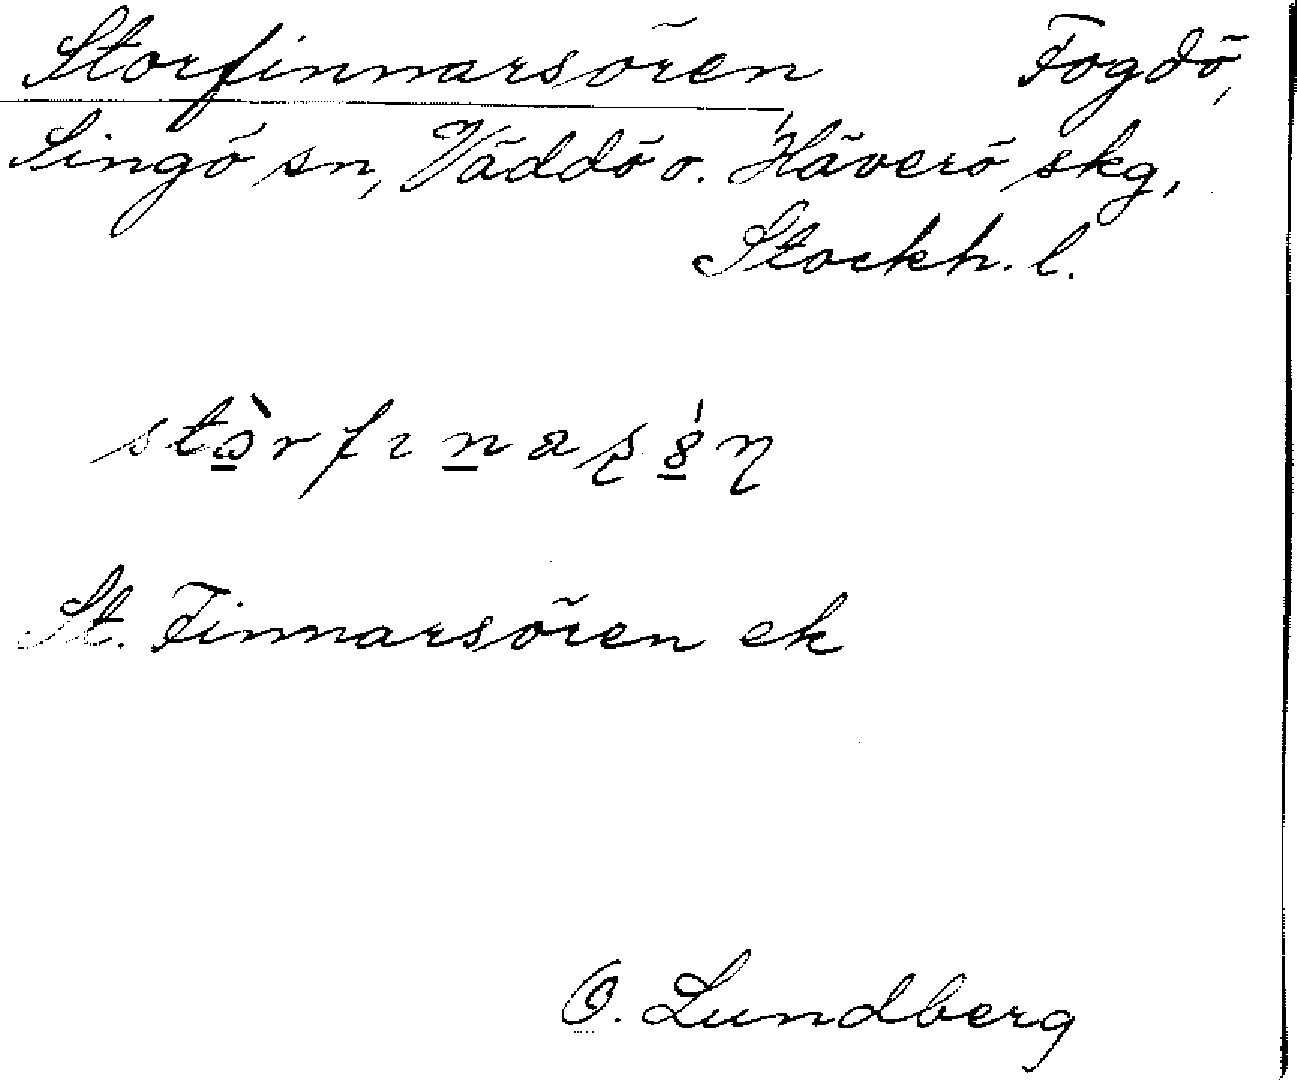 Storfinnarsören Fogdö,
Singö sn, Väddö o. Häverö skg,
Stockh. l.
St. Finnarsören ek
O. Lundberg